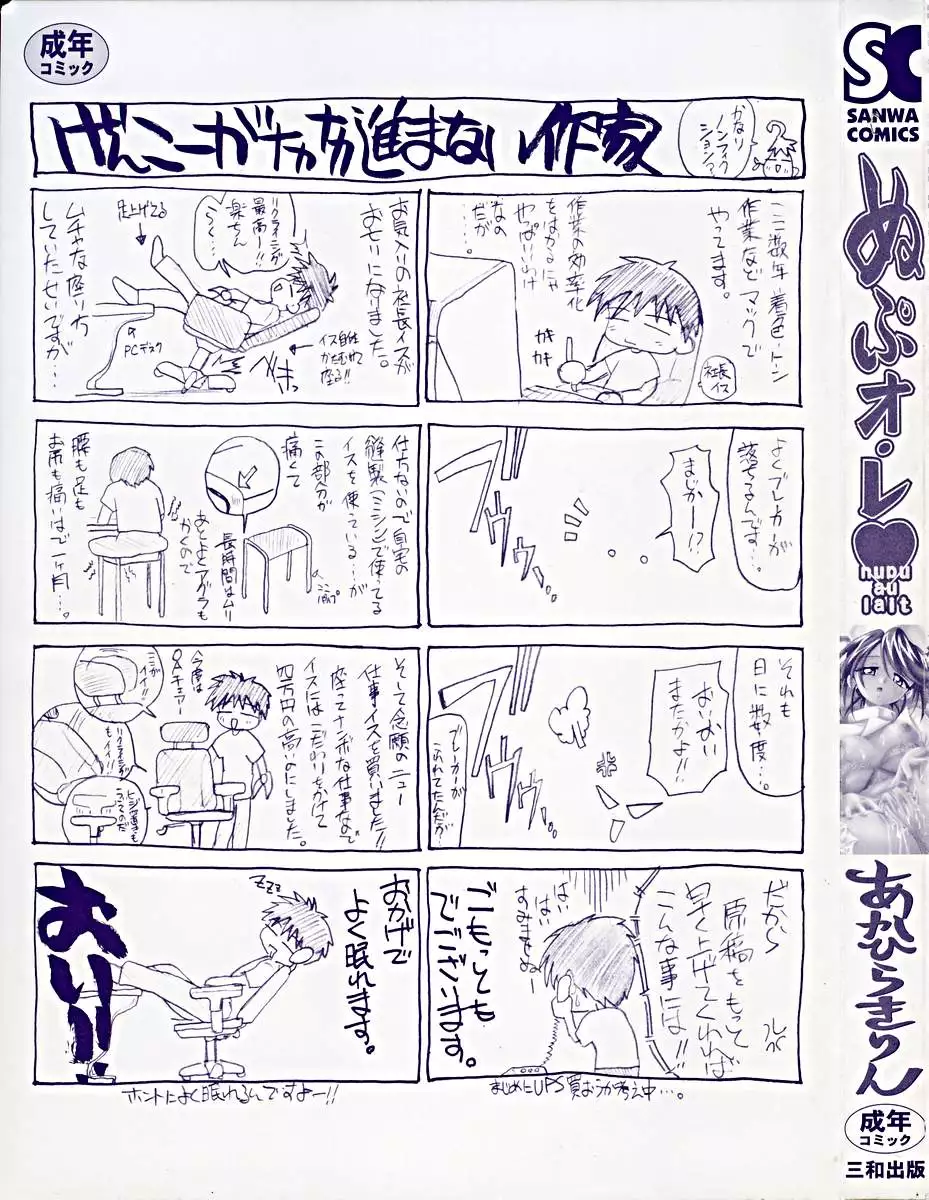 成年
コミック
げんこーがナカナカ進まない作家
かなり
ノンフィク
ション?
ここ数年着色・トン
作業など マックで
やってます。
作業の効率化
をはかるにゃ
やっぱいいわけ
なの
だが
……
カキ
カキ
社長
イス
よくブレーカーが
落ちるんです…。
まじかー!?
ブツッ
それも
日に数度…。
おいおい
またかよ!!
ブレーカーが
だから
原稿をもって
早く上げてくれれば
こんな事には!!
はい
はい
すみませんね
ごもっとも
でございます。
まじめにUPS買おうか考え中…。
お気入りの社長イスが
おせいになりました。
リクライニングが
最高ー!!
楽ちん
足上げてる
PCデスク
イス自体
かたむけて
座る!!
ムチャな座り方
していたせいですが…
仕方ないので自宅の
縫製(ミシン)で使ってる
イスを使っている…が
この部分が
痛くて
長時間はムリ
おとっとアグラも
かくので
腰も足も
お尻も痛いはで一ヶ月…。
そして念願のニュー
仕事イスを買いました!!
座ってナンボな仕事なので
イスには こだわりをかけて
四万円の高いのにしました。
今度は
OAチェアー
ここが
イイ!!
リクライニングが
もイイ!!
ヒジ置きも
おかげで
よく眠れます。
ZZZ
おい!!
ホントによく眠れるんですよー!!
SC
SANWA
COMICS
ぬぷオ・レ♥
nupu
au
lait
あかひらきりん
成年
コミック
三和出版